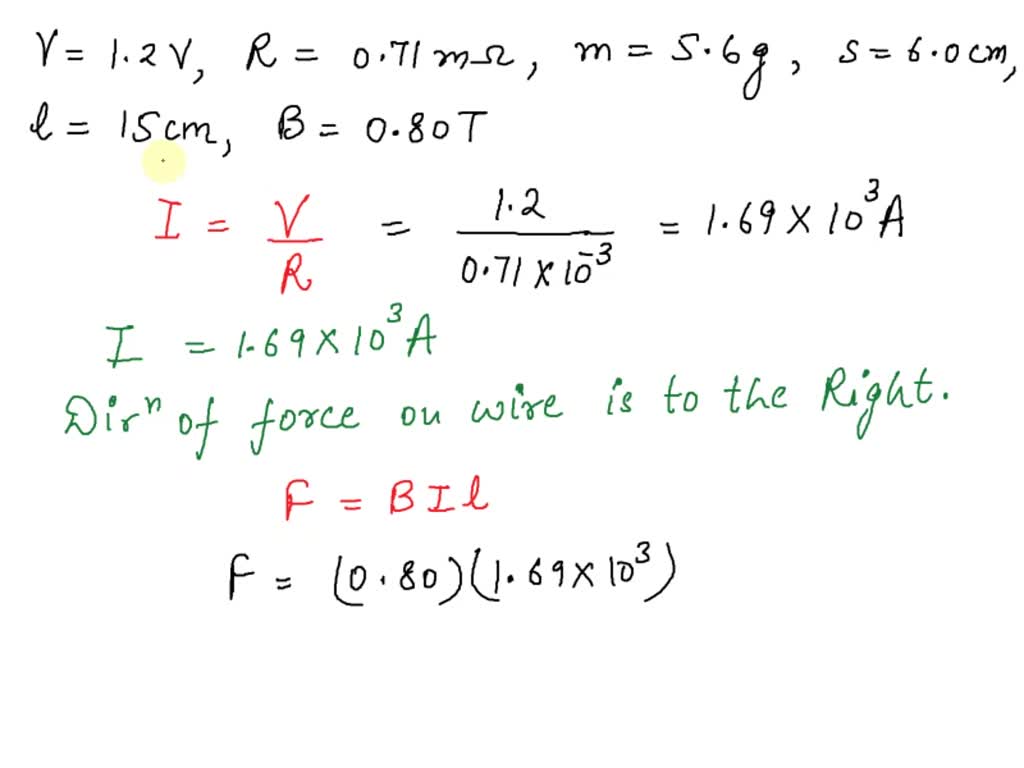 V = 1.2 V, R = 0.71 mΩ, m = 5.6 g, s = 6.0 cm,
l = 15 cm, B = 0.80 T
I = V/R = 1.2/0.71 × 10⁻³ = 1.69 × 10³ A
I = 1.69 × 10³ A
Dirⁿ of force on wire is to the Right.
F = B I l
F = (0.80)(1.69 × 10³)